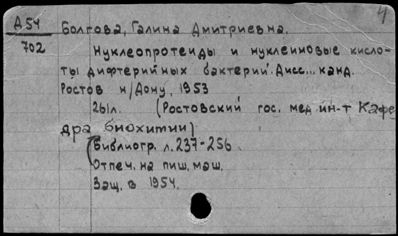 4
Д54 Болгова, Галина Дмитриевна.
702 Нуклеопротеиды и нуклеиновые кисло-
ты дифтерийных бактерий. Дисс... канд.
Ростов н/Дону, 1953
261л. (Ростовский гос. мед ин-т Кафе
дра биохитии)
(Библиогр. л.237-256.
Отпеч. на пиш. маш.
Защ. в 1954.